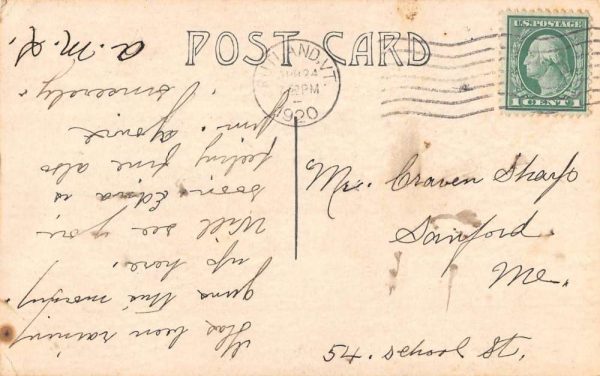 POST CARD
RUTLAND, VT.
24
PM
1920
U.S. POSTAGE
1 CENT 1
Has been raining
this morning
up here.
Will see you
soon. Edna is
feeling fine also
Jim.
Sincerely
Mr. Craven Sharp
Sanford.
Me.
54. School St.